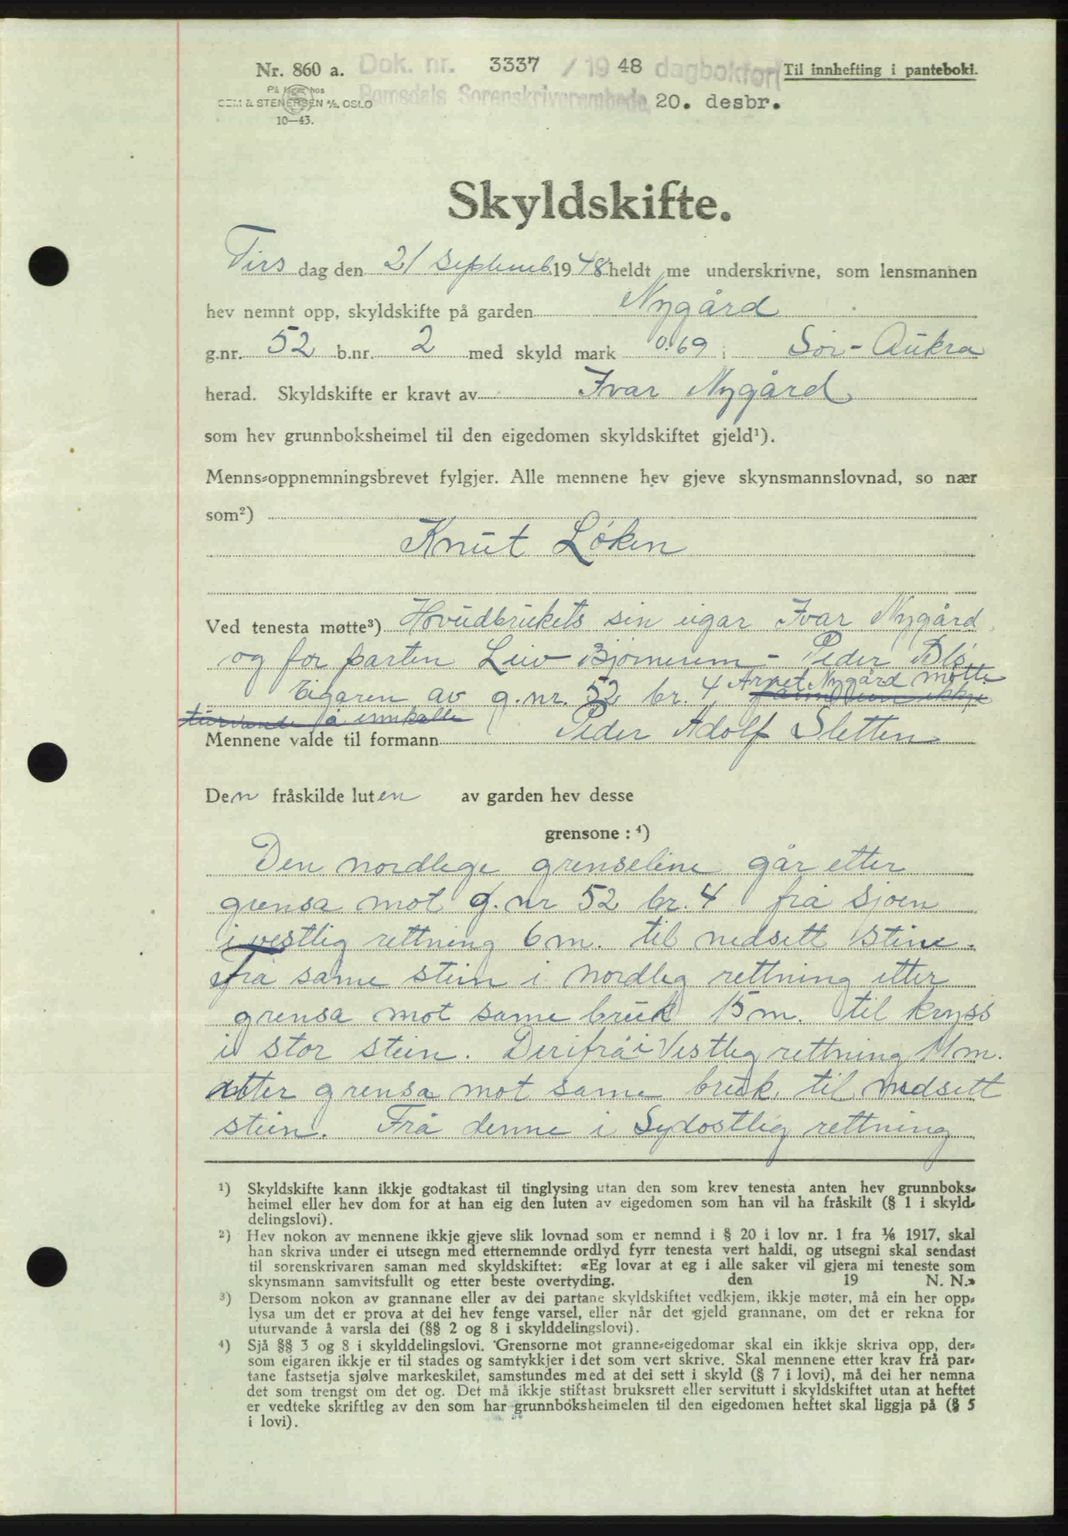 Nr. 860 a. Dok. nr. 3337 / 19 48 dagbokført Til innhefting i panteboki.
På lager hos
SEM & STENERSEN A/S, OSLO Romsdals Sorenskriverembede 20. desbr.
10—43.
Skyldskifte.
Tirs dag den 21 Septemb. 1948 heldt me underskrivne, som lensmannen
hev nemnt opp, skyldskifte på garden Nygård
g.nr. 52 b.nr. 2 med skyld mark 0.69 i Sør-Aukra
herad. Skyldskifte er kravt av Ivar Nygård
som hev grunnboksheimel til den eigedomen skyldskiftet gjeld¹).
Menns-oppnemningsbrevet fylgjer. Alle mennene hev gjeve skynsmannslovnad, so nær
som²)
Knut Løken
Ved tenesta møtte³) Hovudbrukets sin eigar Ivar Nygård
og for parten Leiv Bjørnerem - Peder Blø
Eigaren av g.nr. 52 br. 4 Arnet Nygård møtte
turvande å innkalle
Mennene valde til formann Peder Adolf Sletten
Den fråskilde luten av garden hev desse
grensone : ⁴)
Den nordlege grenseline går etter
grensa mot g. nr 52 br. 4 frå sjøen
i vestlig rettning 6 m. til nedsett stein.
Frå same stein i nordleg rettning etter
grensa mot same bruk 15 m. til kryss
i stor stein. Derifrå i Vestleg rettning 11 m.
etter grensa mot same bruk, til nedsett
stein. Frå denne i Sydostlig rettning
¹) Skyldskifte kann ikkje godtakast til tinglysing utan den som krev tenesta anten hev grunnboks-
heimel eller hev dom for at han eig den luten av eigedomen som han vil ha fråskilt (§ 1 i skyld-
delingslovi).
²) Hev nokon av mennene ikkje gjeve slik lovnad som er nemnd i § 20 i lov nr. 1 fra 1/6 1917, skal
han skriva under ei utsegn med etternemnde ordlyd fyrr tenesta vert haldi, og utsegni skal sendast
til sorenskrivaren saman med skyldskiftet: «Eg lovar at eg i alle saker vil gjera mi teneste som
skynsmann samvitsfullt og etter beste overtyding. den 19 N. N.»
³) Dersom nokon av grannane eller av dei partane skyldskiftet vedkjem, ikkje møter, må ein her opp-
lysa um det er prova at dei hev fenge varsel, eller når det gjeld grannane, om det er rekna for
uturvande å varsla dei (§§ 2 og 8 i skylddelingslovi).
⁴) Sjå §§ 3 og 8 i skylddelingslovi. Grensorne mot granne-eigedomar skal ein ikkje skriva opp, der-
som eigaren ikkje er til stades og samtykkjer i det som vert skrive. Skal mennene etter krav frå par-
tane fastsetja sjølve markeskilet, samstundes med at dei sett i skyld (§ 7 i lovi), må dei her nemna
det som trengst om det og. Det må ikkje stiftast bruksrett eller servitutt i skyldskiftet utan at heftet
er vedteke skriftleg av den som har grunnboksheimelen til den eigedomen heftet skal liggja på (§ 5
i lovi).